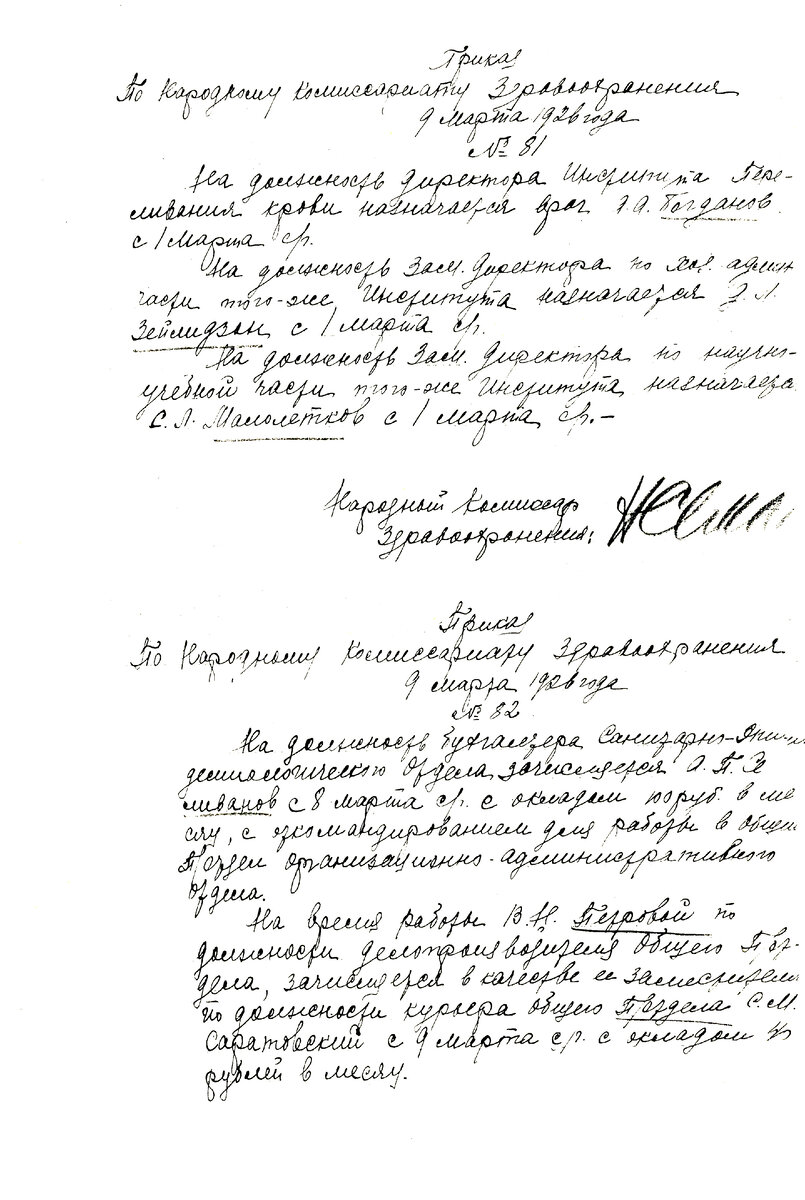 Приказ
По Народному Комиссариату Здравоохранения
9 марта 1926 года
№ 81
На должность Директора Института Пере-
ливания крови назначается врач А.А. Богданов
с 1 марта с/г.
На должность Зам. Директора по хоз. админ
части того-же Института назначается Л.
Зейлидзон с 1 марта с/г.
На должность Зам. Директора по научно-
учебной части того-же Института назначается
С.Л. Малолетков с 1 марта с/г. –
Народной Комиссар
Здравоохранения:
Приказ
По Народному Комиссариату Здравоохранения
9 марта 1926 года
№ 82
На должность Бухгалтера Санитарно-Эпи-
демиологического Отдела зачисляется А.П. Се
ливанов с 8 марта с/г. с окладом 100 руб. в ме
сяц, с откомандированием для работы в Общий
П/отдел организационно-административного
Отдела.
На время работы В.Н. Петровой по
должности делопроизводителя Общего П/от-
дела, зачисляется в качестве ее заместителя
по должности курьера общего П/отдела С.М.
Саратовский с 9 марта с/г. с окладом
рублей в месяц.